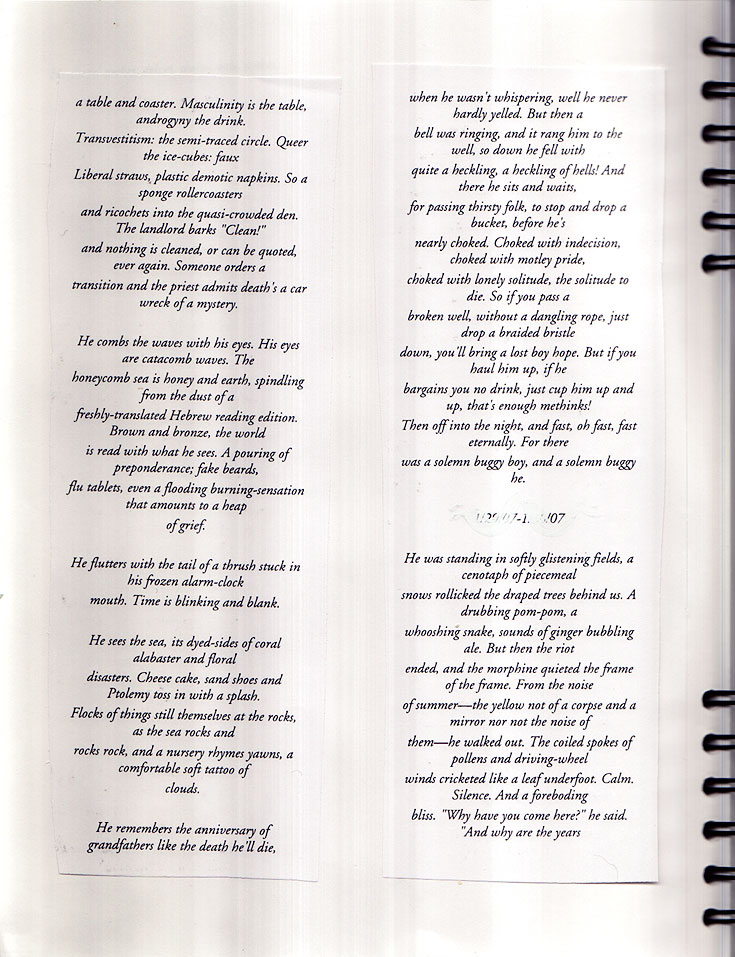 a table and coaster. Masculinity is the table,
androgyny the drink.
Transvestitism: the semi-traced circle. Queer
the ice-cubes: faux
Liberal straws, plastic demotic napkins. So a
sponge rollercoasters
and ricochets into the quasi-crowded den.
The landlord barks "Clean!"
and nothing is cleaned, or can be quoted,
ever again. Someone orders a
transition and the priest admits death's a car
wreck of a mystery.
He combs the waves with his eyes. His eyes
are catacomb waves. The
honeycomb sea is honey and earth, spindling
from the dust of a
freshly-translated Hebrew reading edition.
Brown and bronze, the world
is read with what he sees. A pouring of
preponderance; fake beards,
flu tablets, even a flooding burning-sensation
that amounts to a heap
of grief.
He flutters with the tail of a thrush stuck in
his frozen alarm-clock
mouth. Time is blinking and blank.
He sees the sea, its dyed-sides of coral
alabaster and floral
disasters. Cheese cake, sand shoes and
Ptolemy toss in with a splash.
Flocks of things still themselves at the rocks,
as the sea rocks and
rocks rock, and a nursery rhymes yawns, a
comfortable soft tattoo of
clouds.
He remembers the anniversary of
grandfathers like the death he'll die,
when he wasn't whispering, well he never
hardly yelled. But then a
bell was ringing, and it rang him to the
well, so down he fell with
quite a heckling, a heckling of hells! And
there he sits and waits,
for passing thirsty folk, to stop and drop a
bucket, before he's
nearly choked. Choked with indecision,
choked with motley pride,
choked with lonely solitude, the solitude to
die. So if you pass a
broken well, without a dangling rope, just
drop a braided bristle
down, you'll bring a lost boy hope. But if you
haul him up, if he
bargains you no drink, just cup him up and
up, that's enough methinks!
Then off into the night, and fast, oh fast, fast
eternally. For there
was a solemn buggy boy, and a solemn buggy
he.
He was standing in softly glistening fields, a
cenotaph of piecemeal
snows rollicked the draped trees behind us. A
drubbing pom-pom, a
whooshing snake, sounds of ginger bubbling
ale. But then the riot
ended, and the morphine quieted the frame
of the frame. From the noise
of summer—the yellow not of a corpse and a
mirror nor not the noise of
them—he walked out. The coiled spokes of
pollens and driving-wheel
winds cricketed like a leaf underfoot. Calm.
Silence. And a foreboding
bliss. "Why have you come here?" he said.
"And why are the years